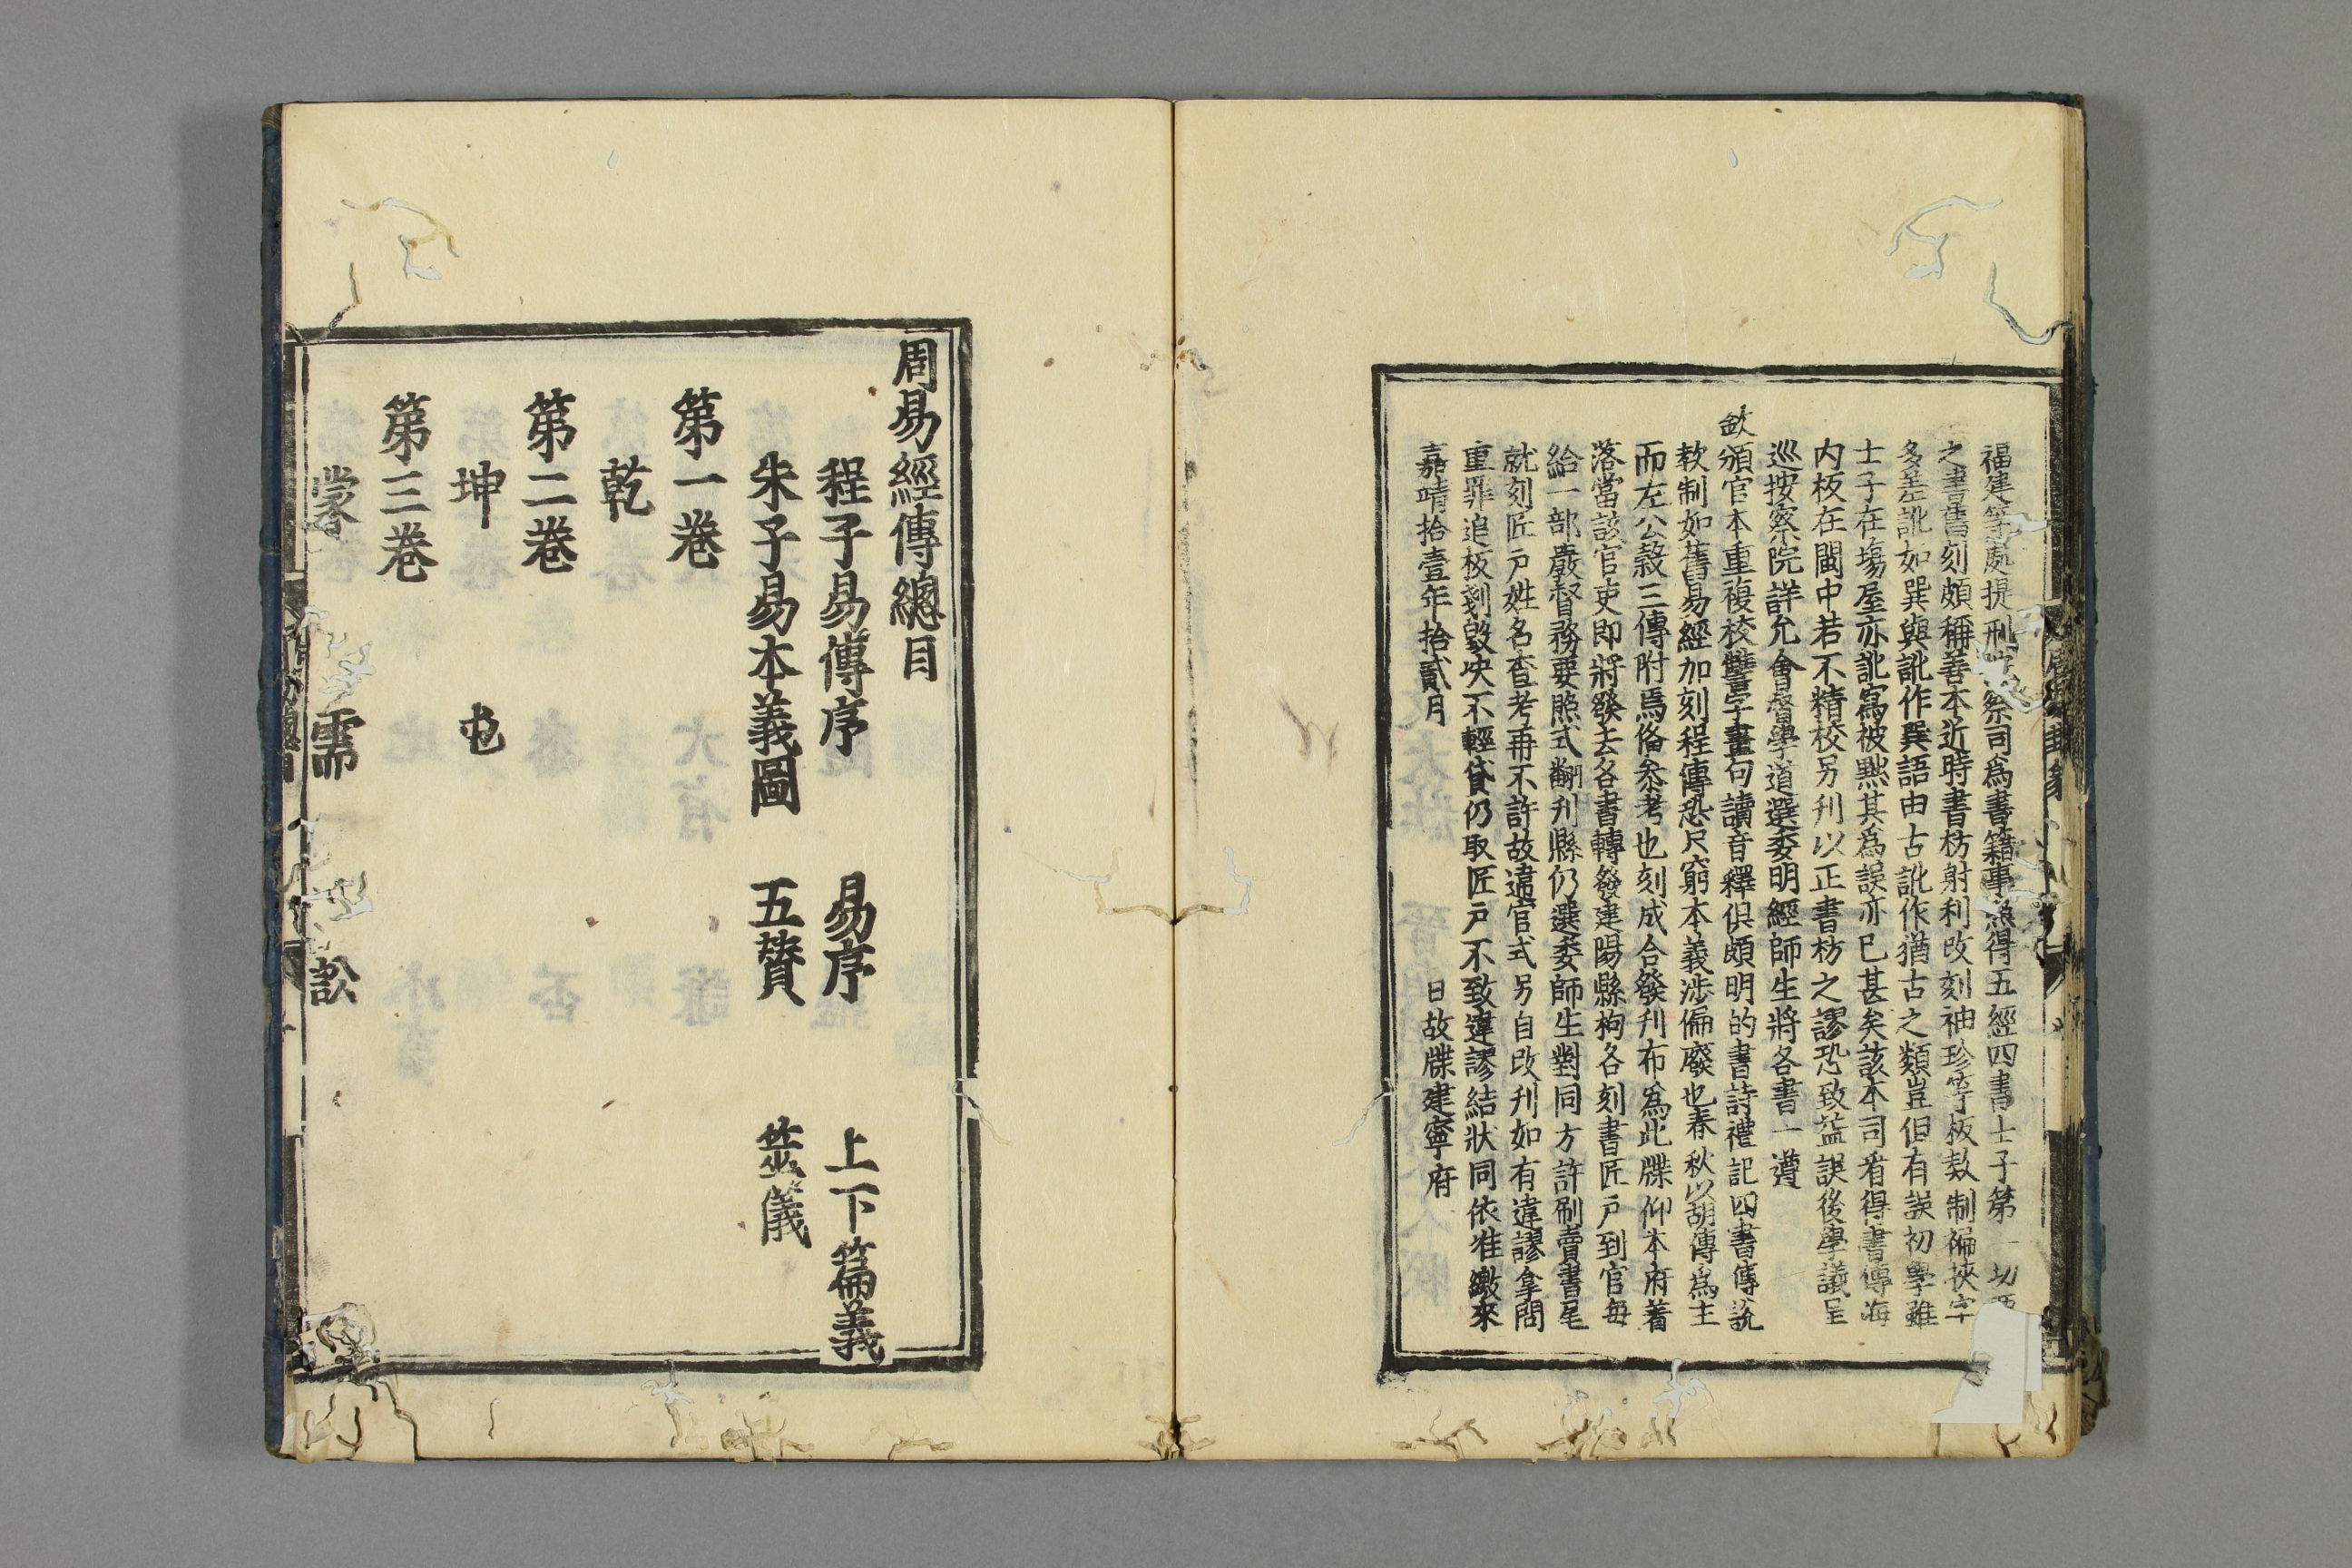 福建等處提刑按察司爲書籍事照得五經四書士子第一切要
之書舊刻頗稱善本近時書坊射利改刻袖珍等板欵制褊狹字
多差訛如巽與訛作巽語由古訛作猶古之類豈但有誤初學雖
士子在塲屋亦訛寫被黜其爲誤亦已甚矣該本司看得書傳海
内板在閩中若不精校另刋以正書枋之謬恐致益誤後學議呈
巡按察院詳允會督學道選委明經師生將各書一遵
欽頒官本重複校讐字畫句讀音釋俱頗明的書詩禮記四書傳說
欵制如舊易經加刻程傳恐只窮本義涉偏廢也春秋以胡傳爲主
而左公榖三傳附焉俻叅考也刻成合發刋布爲此牒仰本府着
落當該官吏即將發去各書轉發建陽縣拘各刻書匠戶到官每
給一部嚴督務要照式翻刋縣仍選委師生對同方許刷賣書尾
就刻匠戶姓名查考再不許故違官式另自改刋如有違謬拿問
重罪追板剗毀决不輕貸仍取匠戶不致違謬結狀同依准繳來
嘉靖拾壹年拾貳月 日故牒建寧府
周易經傳總目
程子易傳序 易序 上下篇義
朱子易本義圖 五贊 筮儀
第一卷
乾
第二卷
坤 屯
第三卷
蒙 需 訟